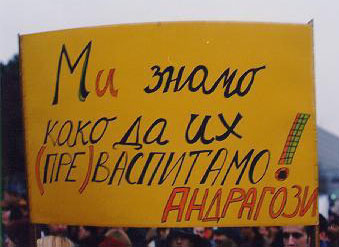 Ми знамо
како да их
(ПРЕ)ВАСПИТАМО!
АНДРАГОЗИ